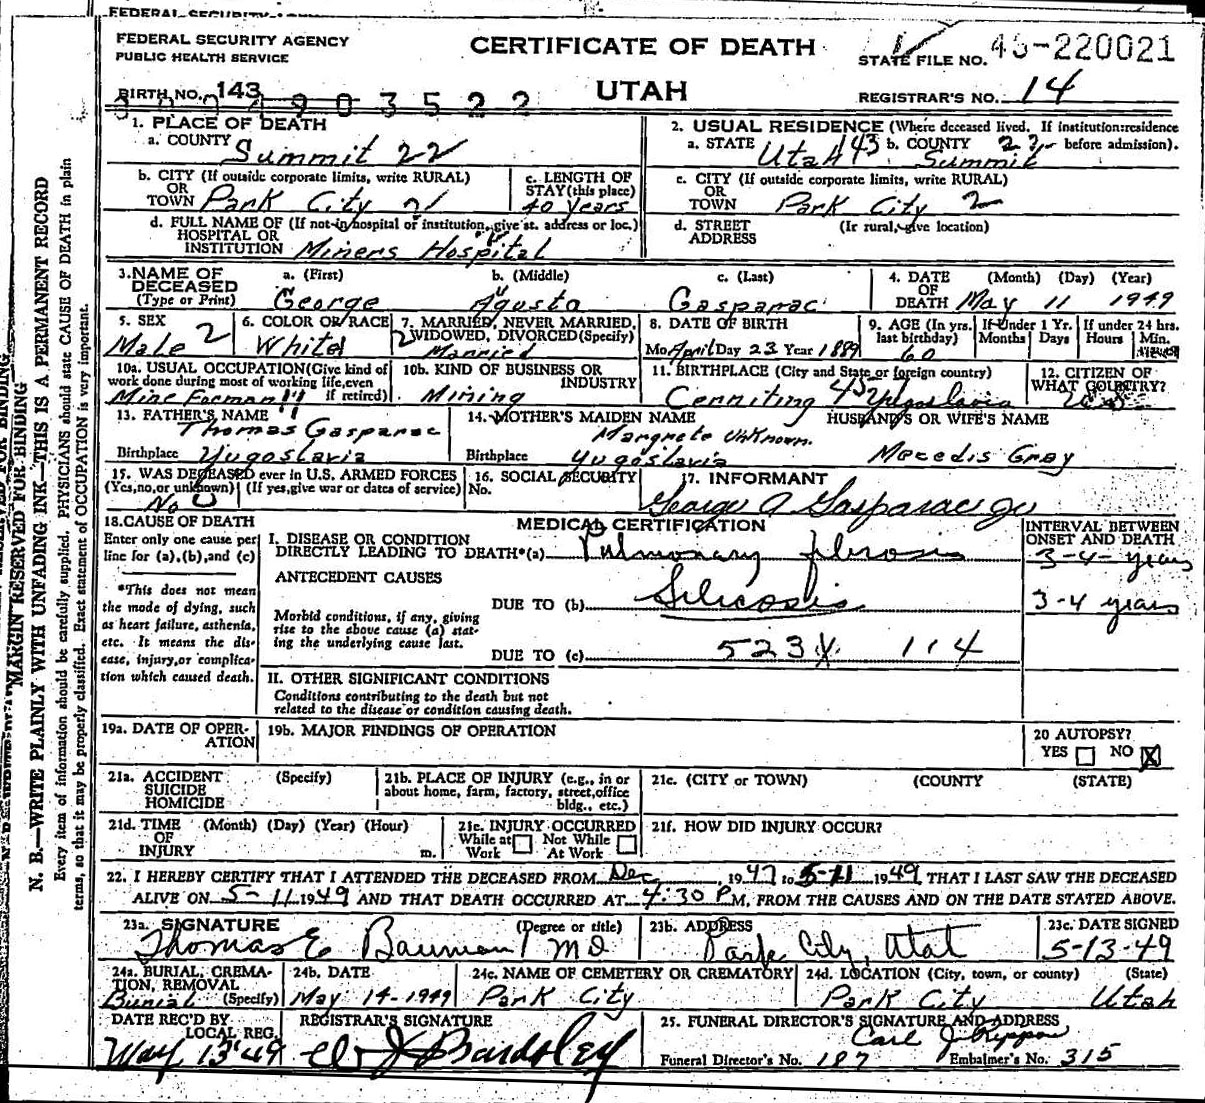 FEDERAL SECURITY AGENCY
PUBLIC HEALTH SERVICE
CERTIFICATE OF DEATH
UTAH
STATE FILE NO. 48-220021
REGISTRAR'S NO. 14
BIRTH NO. 143
0 0 0 4 9 0 3 5 2 2
1. PLACE OF DEATH
a. COUNTY Summit 22
b. CITY (If outside corporate limits, write RURAL) OR TOWN Park City 21
c. LENGTH OF STAY (this place) 40 years
d. FULL NAME OF (If not in hospital or institution, give st. address or loc.) HOSPITAL OR INSTITUTION Miners Hospital
2. USUAL RESIDENCE (Where deceased lived. If institution:residence before admission).
a. STATE Utah 143 b. COUNTY 22 Summit
c. CITY (If outside corporate limits, write RURAL) OR TOWN Park City 2
d. STREET ADDRESS (If rural, give location)
3. NAME OF DECEASED (Type or Print)
a. (First) George b. (Middle) Agusta c. (Last) Gasparac
4. DATE OF DEATH (Month) (Day) (Year) May 11 1949
5. SEX Male 2
6. COLOR OR RACE White
7. MARRIED, NEVER MARRIED, WIDOWED, DIVORCED (Specify) 2 Married
8. DATE OF BIRTH Mo. April Day 23 Year 1889
9. AGE (In yrs. last birthday) 60
If Under 1 Yr. Months Days
If under 24 hrs. Hours Min.
10a. USUAL OCCUPATION (Give kind of work done during most of working life, even if retired) Mine Forman
10b. KIND OF BUSINESS OR INDUSTRY Mining
11. BIRTHPLACE (City and State or foreign country) 45 Yugoslavia
12. CITIZEN OF WHAT COUNTRY?
13. FATHER'S NAME Thomas Gasparac
Birthplace Yugoslavia
14. MOTHER'S MAIDEN NAME Margrete Unknown.
Birthplace Yugoslavia
HUSBAND'S OR WIFE'S NAME
Mecedis Gray
15. WAS DECEASED ever in U.S. ARMED FORCES (Yes, no, or unknown) (If yes, give war or dates of service) No
16. SOCIAL SECURITY No.
17. INFORMANT
George A Gasparac Jr
18. CAUSE OF DEATH
Enter only one cause per line for (a), (b), and (c)
*This does not mean the mode of dying, such as heart failure, asthenia, etc. It means the disease, injury, or complication which caused death.
MEDICAL CERTIFICATION
I. DISEASE OR CONDITION DIRECTLY LEADING TO DEATH*(a) Pulmonary fibrosis
ANTECEDENT CAUSES
DUE TO (b) Silicosis
Morbid conditions, if any, giving rise to the above cause (a) stating the underlying cause last.
DUE TO (c) 523X 114
INTERVAL BETWEEN ONSET AND DEATH
3-4-years
3-4 years
II. OTHER SIGNIFICANT CONDITIONS
Conditions contributing to the death but not related to the disease or condition causing death.
19a. DATE OF OPERATION
19b. MAJOR FINDINGS OF OPERATION
20 AUTOPSY?
YES NO X
21a. ACCIDENT SUICIDE HOMICIDE (Specify)
21b. PLACE OF INJURY (e.g., in or about home, farm, factory, street, office bldg., etc.)
21c. (CITY or TOWN) (COUNTY) (STATE)
21d. TIME OF INJURY (Month) (Day) (Year) (Hour) m.
21e. INJURY OCCURRED While at Work Not While At Work
21f. HOW DID INJURY OCCUR?
22. I HEREBY CERTIFY THAT I ATTENDED THE DECEASED FROM Dec, 1947 to 5-11 1949 THAT I LAST SAW THE DECEASED
ALIVE ON 5-11 1949 AND THAT DEATH OCCURRED AT 4:30 P M, FROM THE CAUSES AND ON THE DATE STATED ABOVE.
23a. SIGNATURE (Degree or title) Thomas E Bauman MD
23b. ADDRESS Park City, Utah
23c. DATE SIGNED 5-13-49
24a. BURIAL, CREMATION, REMOVAL (Specify) Burial
24b. DATE May 14-1949
24c. NAME OF CEMETERY OR CREMATORY Park City
24d. LOCATION (City, town, or county) (State) Park City Utah
DATE REC'D BY LOCAL REG. May 13 '49
REGISTRAR'S SIGNATURE Bardsley
25. FUNERAL DIRECTOR'S SIGNATURE AND ADDRESS
Carl
Funeral Director's No. 187 Embalmer's No. 315
MARGIN RESERVED FOR BINDING
N. B.—WRITE PLAINLY WITH UNFADING INK—THIS IS A PERMANENT RECORD
Every item of information should be carefully supplied. PHYSICIANS should state CAUSE OF DEATH in plain
terms, so that it may be properly classified. Exact statement of OCCUPATION is very important.